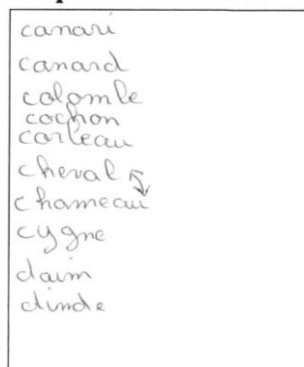 canari
canard
colombe
cochon
corbeau
cheval
chameau
cygne
daim
dinde